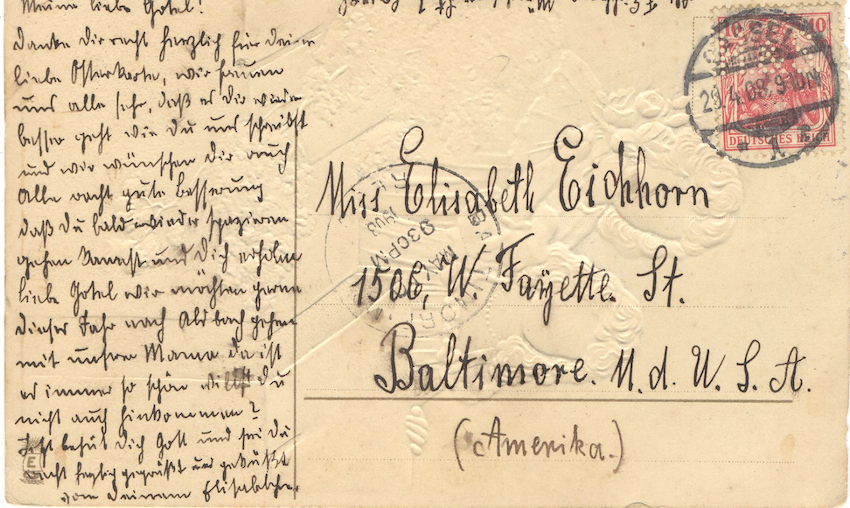 Meine liebe Gotel!
Danke dir recht herzlich für deine
liebe Osterkarte, wir freuen
uns alle sehr, daß es dir wieder
besser geht wie du uns schreibst
und wir wünschen dir auch
alle recht gute Besserung
daß du bald wieder spazieren
gehen kannst und dich erholen
liebe Gotel wir möchten gerne
dieses Jahr nach Alsbach gehen
mit unserer Mama da ist
es immer so schön willst du
nicht auch hinkommen?
behüt dich Gott und sei du
recht herzlich gegrüßt und geküßt
von deinem Elisabethche.
CASSEL
29.4.08. 9-10N
10 10
DEUTSCHES REICH
Miss Elisabeth Eichhorn
1506, W. Fayette. St.
Baltimore. M. d. U. S. A.
(Amerika.)
BALTIMORE,
MAY
930PM
1908
E